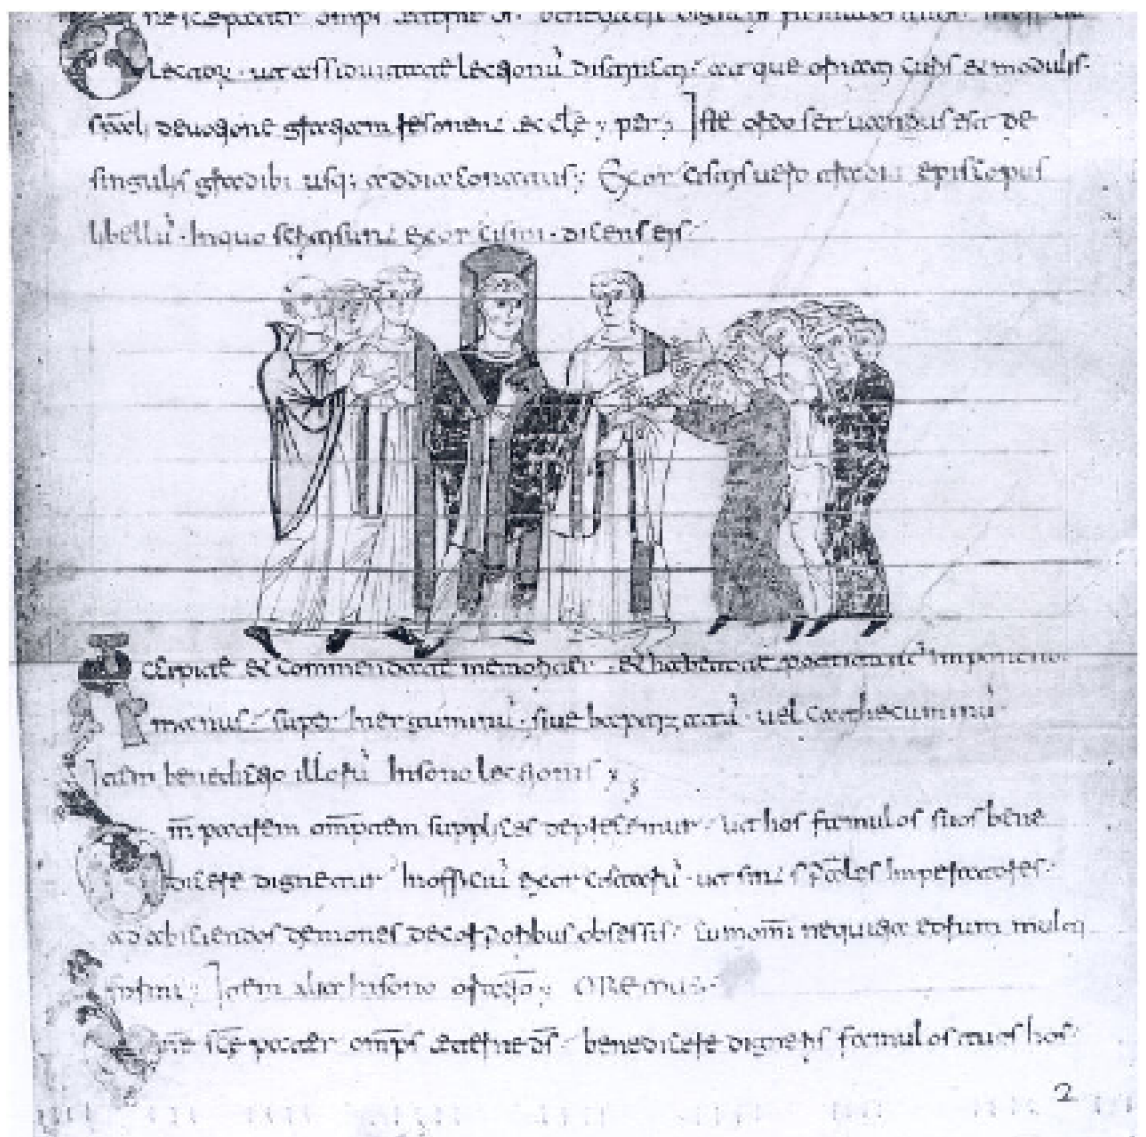 ne sce pater omps aeterne ds benedicere digneris famulos tuos
lector ut assiduitate lectionū distincti atque ornati curis et modulis
devotione gratiam resonent eccle per Iste ordo servandus est de
singulis gradibus usq; ad diaconatus Exorcistis vero tradit episcopus
libellū In quo scripti sunt exorcismi dicens eis
Accipite et commendate memorie et habetote potestatē Imponendi
manus super Inerguminū sive baptizatū vel cathecuminū
Item benedictio illorū In sono lectionis
Dm̄ patrem om̄ptem supplices deprecemur ut hos famulos suos bene
dicere dignetur In officiū exorcistarū ut sint sp̄ales Imperatores
ad abiciendos demones de corporibus obsessis cum om̄i nequitia eorum multi
formi Item alia In sono oratiō OREMUS
Dnē scē pater om̄ps aeterne ds̄ benedicere digneris famulos tuos hos
2